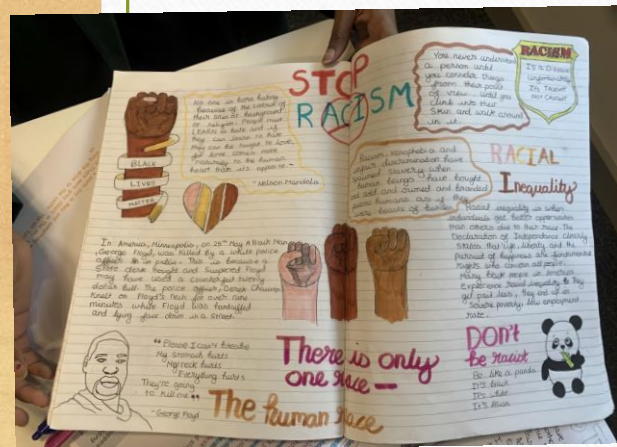 STOP
RACISM
No one is born hating
because of the colour of
their skin or background
or religion. People must
LEARN to hate and if
they can learn to hate
they can be taught to love,
for love comes more
naturally to the human
heart than its opposite -
- Nelson Mandela
BLACK
LIVES
MATTER
In America, Minneapolis, on 25th May A Black Man
, George Floyd, was killed by a white police
officer in public. This is because a
store clerk thought and suspected Floyd
may have used a counterfeit twenty
dollar bill. The police officer, Derek Chauvin
knelt on Floyd's neck for over nine
minutes while Floyd was handcuffed
and lying face down in a street.
"Please I can't breathe
My stomach hurts
My neck hurts
Everything hurts
They're going
to kill me"
- George Floyd
You never understand
a person until
you consider things
from their point
of view... until you
climb into their
skin and walk around
in it.
RACISM
IS A Disease
Unfortunately
It's TAUGHT
NOT CAUGHT
Racism, xenophobia and
unfair discrimination have
slavery when
human beings have bought
and sold and owned and branded
fellow humans as if they
were beasts of burden
RACIAL
Inequality
Racial inequality is when
individuals get better opportunities
than others due to their race. The
Declaration of Independence clearly
states that life, liberty and the
pursuit of happiness are fundamental
rights who concern all people.
Many black people in America
Experience racial inequality. They
get paid less, they end up in
severe poverty, low employment
rate.
There is only
one race -
The human race
DON't
be racist
Be like a panda
It's black
It's white
It's Asian